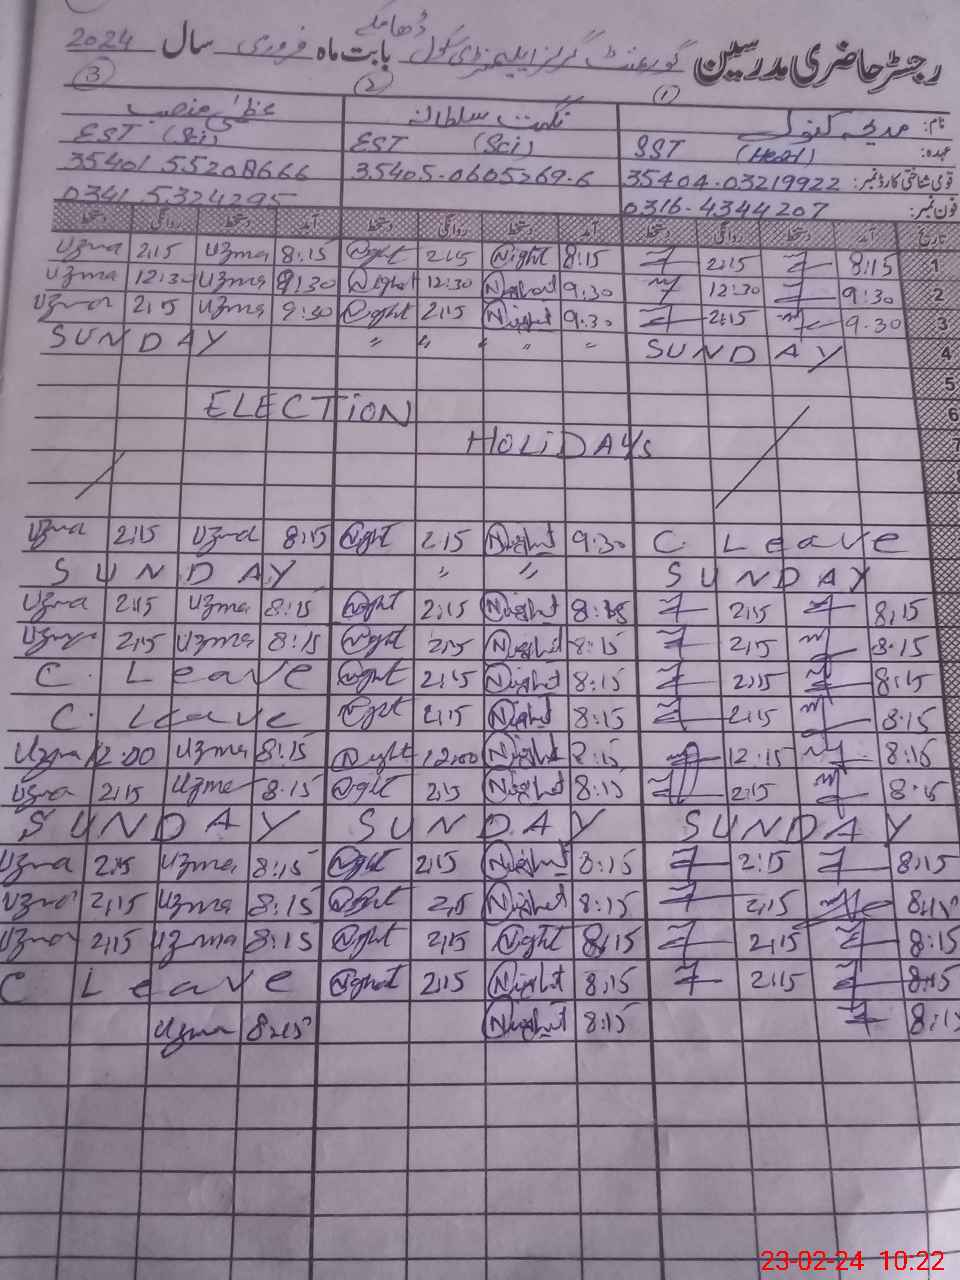 رجسٹر حاضری مدرسین گورنمنٹ گرلز ایلیمنٹری سکول ڈھامکے بابت ماہ فروری سال 2024
(1) (2) (3)
نام: مدیحہ کنول نگہت سلطانہ عظمیٰ
عہدہ: SST (Head) EST (Sci) EST (Sci)
قومی شناختی کارڈ نمبر: 35404-03219922 35405-0605269-6 35401 55208666
فون نمبر: 0316-4344207 0341 5324295
تاریخ آمد دستخط روانگی دستخط آمد دستخط روانگی دستخط آمد دستخط روانگی دستخط
Uzma 2:15 Uzma 8:15 Night 2:15 Night 8:15 2:15 8:15 1
Uzma 12:30 Uzma 9:30 Night 12:30 Night 9:30 12:30 9:30 2
Uzma 2:15 Uzma 9:30 Night 2:15 Night 9:30 2:15 9:30 3
SUNDAY " " " " " SUNDAY 4
5
ELECTION 6
HOLIDAYS 7
Uzma 2:15 Uzma 8:15 Night 2:15 Night 9:30 C. Leave
SUNDAY " " SUNDAY
Uzma 2:15 Uzma 8:15 Night 2:15 Night 8:15 2:15 8:15
Uzma 2:15 Uzma 8:15 Night 2:15 Night 8:15 2:15 8:15
C. Leave Night 2:15 Night 8:15 2:15 8:15
C. Leave Night 2:15 Night 8:15 2:15 8:15
Uzma 12:00 Uzma 8:15 Night 12:00 Night 8:15 12:15 8:15
Uzma 2:15 Uzma 8:15 Night 2:15 Night 8:15 2:15 8:15
SUNDAY SUNDAY SUNDAY
Uzma 2:15 Uzma 8:15 Night 2:15 Night 8:15 2:15 8:15
Uzma 2:15 Uzma 8:15 Night 2:15 Night 8:15 2:15 8:15
Uzma 2:15 Uzma 8:15 Night 2:15 Night 8:15 2:15 8:15
C Leave Night 2:15 Night 8:15 2:15 8:15
Uzma 8:15 Night 8:15 8:15
23-02-24 10:22